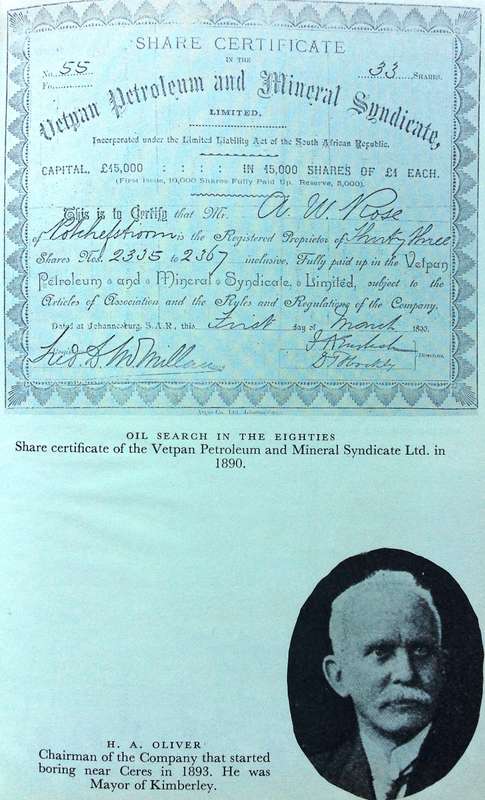 SHARE CERTIFICATE
IN THE
No. 55 33 SHARES.
Fo.
Vetpan Petroleum and Mineral Syndicate,
LIMITED.
Incorporated under the Limited Liability Act of the South African Republic.
CAPITAL, £15,000 : : : : IN 15,000 SHARES OF £1 EACH.
(First Issue, 10,000 Shares Fully Paid Up. Reserve, 5,000).
This is to Certify that Mr. A. W. Rose
of Potchefstroom is the Registered Proprietor of Thirty Three
Shares Nos. 2335 to 2367 inclusive, Fully paid up in the Vetpan
Petroleum and Mineral Syndicate, Limited, subject to the
Articles of Association and the Rules and Regulations of the Company.
Dated at Johannesburg, S.A.R., this First day of March 1890.
Directors.
OIL SEARCH IN THE EIGHTIES
Share certificate of the Vetpan Petroleum and Mineral Syndicate Ltd. in
1890.
H. A. OLIVER
Chairman of the Company that started
boring near Ceres in 1893. He was
Mayor of Kimberley.